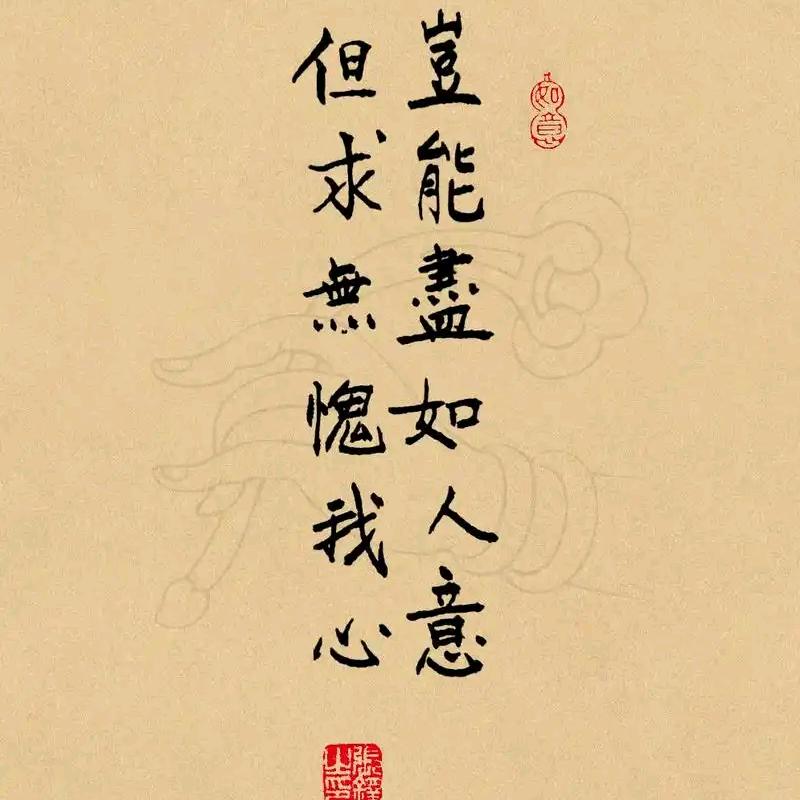 豈能盡如人意
但求無愧我心
如意